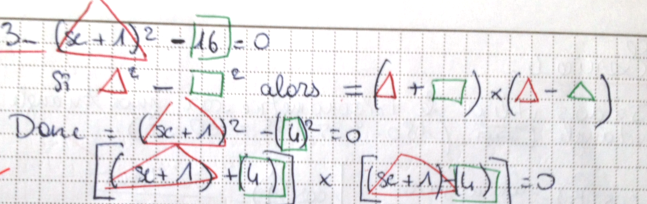 3- (x+1)² - 16 = 0
Si △² - □² alors = (△ + □) × (△ - △)
Donc = (x+1)² - (4)² = 0
[(x+1) + (4)] × [(x+1) - (4)] = 0